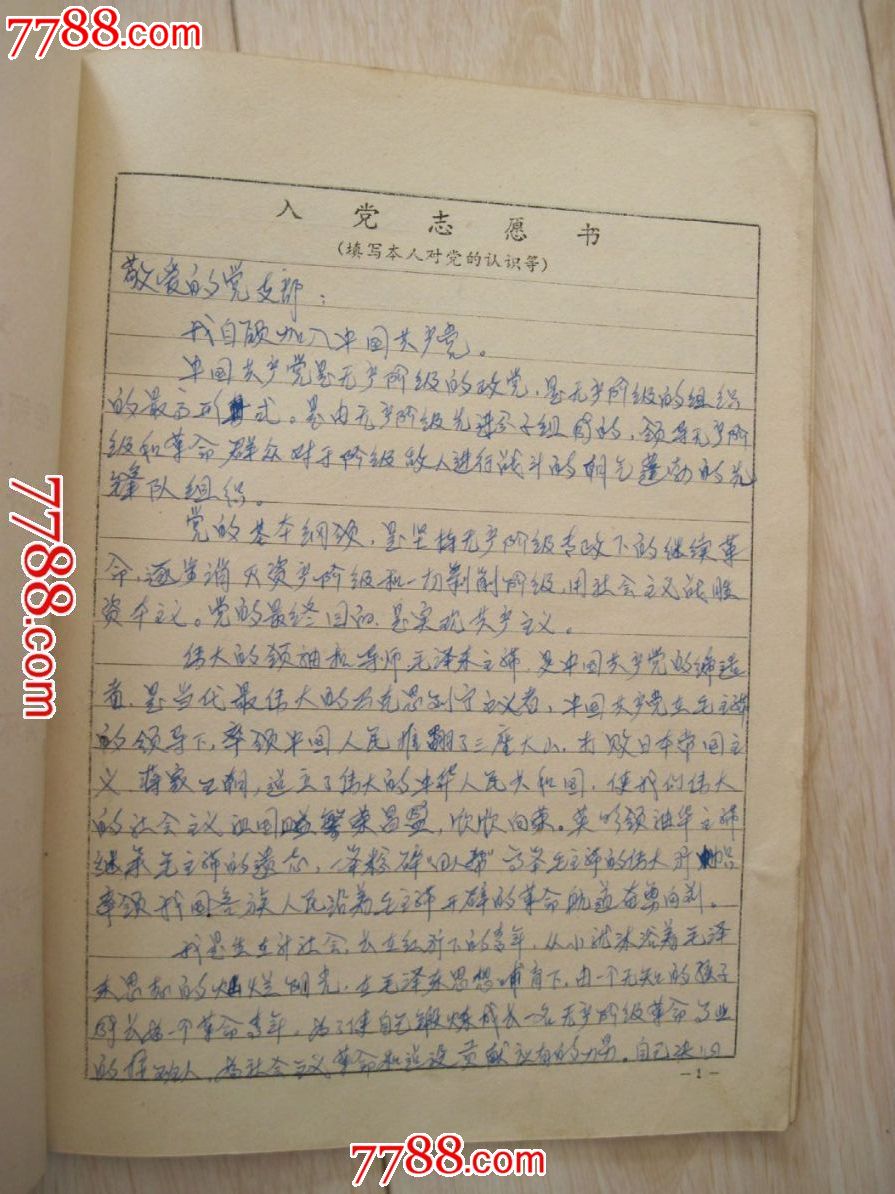 7788.com
7788.com
入党志愿书
(填写本人对党的认识等)
敬爱的党支部：
我自愿加入中国共产党。
中国共产党是无产阶级的政党，是无产阶级的组织
的最高形式。是由无产阶级先进分子组成的，领导无产阶
级和革命群众对于阶级敌人进行战斗的朝气蓬勃的先
锋队组织。
党的基本纲领，是坚持无产阶级专政下的继续革
命，逐步消灭资产阶级和一切剥削阶级，用社会主义战胜
资本主义。党的最终目的，是实现共产主义。
伟大的领袖和导师毛泽东主席，是中国共产党的缔造
者，是当代最伟大的马克思列宁主义者，中国共产党在毛主席
的领导下，率领中国人民推翻了三座大山，打败日本帝国主
义、蒋家王朝，建立了伟大的中华人民共和国，使我们伟大
的社会主义祖国繁荣昌盛，欣欣向荣。英明领袖华主席
继承毛主席的遗志，一举粉碎“四人帮”高举毛主席的伟大旗帜
率领我国各族人民沿着毛主席开辟的革命航道奋勇向前。
我是生在新社会，长在红旗下的青年，从小就沐浴着毛泽
东思想的灿烂阳光，在毛泽东思想哺育下，由一个无知的孩子
成长为一个革命青年。为了使自己锻炼成长一名无产阶级革命事业
的接班人，为社会主义革命和建设贡献应有的力量。自己决心
-1-
7788.com
7788.com